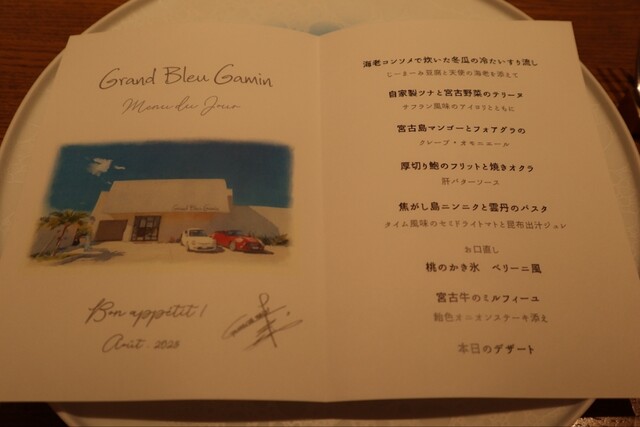 Grand Bleu Gamin
Menu du Jour
Grand Bleu Gamin
Bon appétit!
Août. 2025
海老コンソメで炊いた冬瓜の冷たいすり流し
じーまーみ豆腐と天使の海老を添えて
自家製ツナと宮古野菜のテリーヌ
サフラン風味のアイオリとともに
宮古島マンゴーとフォアグラの
クレープ・オモニエール
厚切り鮑のフリットと焼きオクラ
肝バターソース
焦がし島ニンニクと雲丹のパスタ
タイム風味のセミドライトマトと昆布出汁ジュレ
お口直し
桃のかき氷 ベリーニ風
宮古牛のミルフィーユ
飴色オニオンステーキ添え
本日のデザート